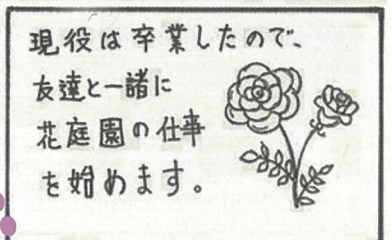 現役は卒業したので、
友達と一諸に
花庭園の仕事
を始めます。